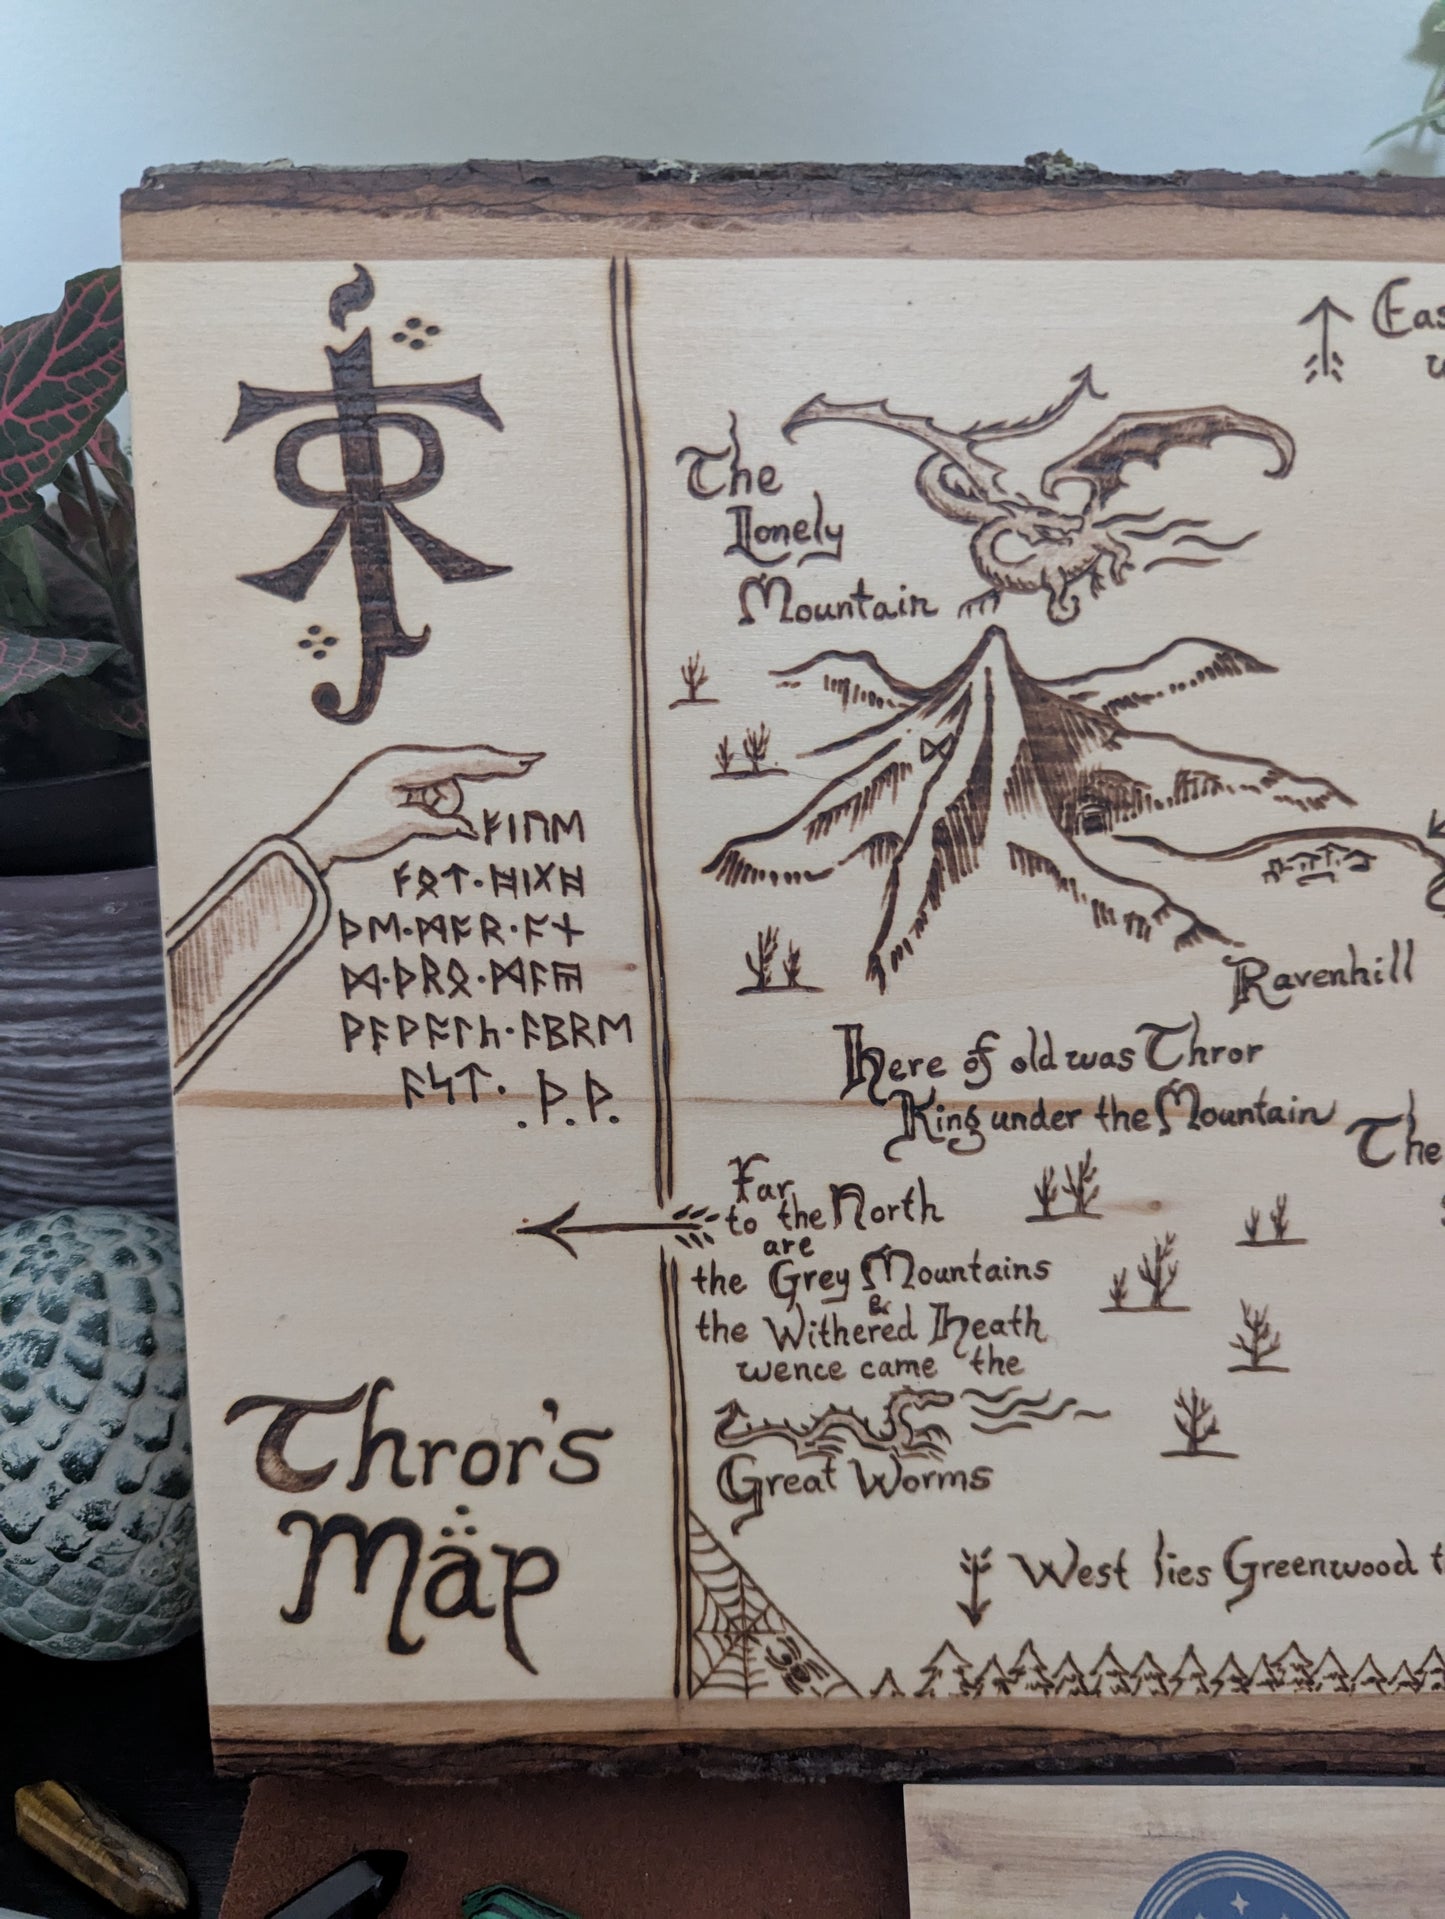 ᚠᛁᚢᛖ
ᚠᛟᛏ·ᚻᛁᚷᚻ
ᚦᛖ·ᛗᚫᚱ·ᚫᚾ
ᛞ·ᚦᚱᛟ·ᛗᚫᚣ
ᚹᚫᚹᚫᛚᚳ·ᚫᛒᚱᛖ
ᚫᛋᛏ·
.ᚦ.ᚦ.
Thror's
Map
Eas
The
Lonely
Mountain
Ravenhill
Here of old was Thror
King under the Mountain
The
Far
to the North
are
the Grey Mountains
&
the Withered Heath
wence came the
Great Worms
West lies Greenwood t